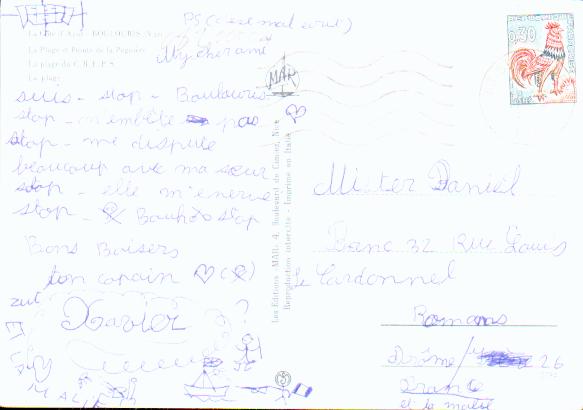 PS (c'est mal ecrit)
La Côte d'Azur - BOULOURIS (Var)
La Plage et Pointe de la
La plage du C.R.E.P.S.
La plage
My cher ami
suis - stop - Boulouris
stop - m'embête pas
stop - me dispute
beaucoup avec ma sœur
stop - elle m'enerve
stop - Bauhox stop
Bons Baisers
ton copain
zut
Xavier
MAR
Les Editions "MAR", 4, Boulevard de Cimiez, Nice
Reproduction interdite - Imprimé en Italie
0,30
Mister Daniel
Danc 32 Rue Louis
Le Cardonnel
Romans
Drôme / 26
France
et la